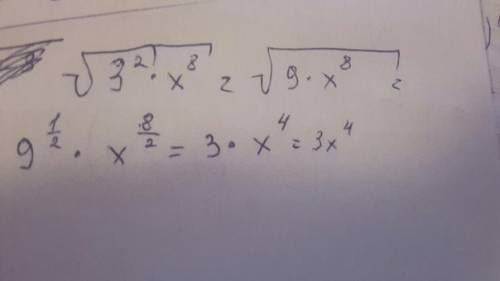 √(3²·x⁸) = √(9·x⁸) =
9^(1/2) · x^(8/2) = 3·x⁴ = 3x⁴